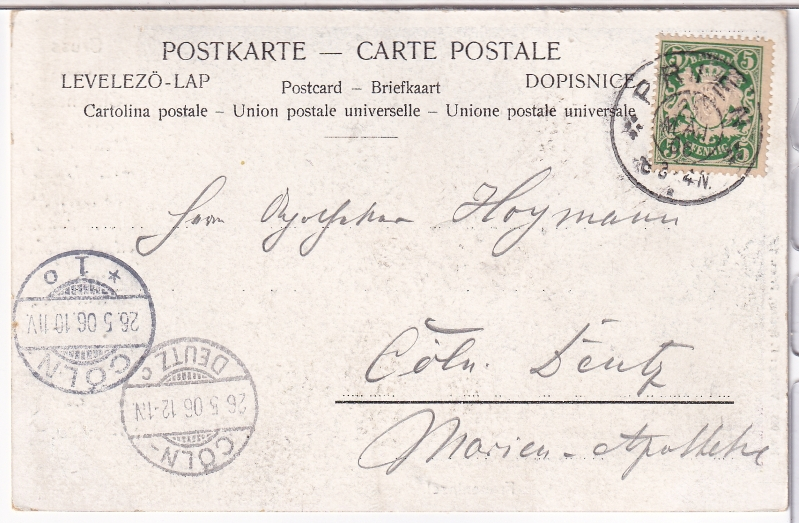 POSTKARTE — CARTE POSTALE
LEVELEZÖ-LAP Postcard – Briefkaart DOPISNICE
Cartolina postale – Union postale universelle – Unione postale universale
BAYERN
5 5
PFENNIG
5 5
PRIEN
Herrn Apotheker Hoymann
Cöln. Deutz
Marien-Apotheke
CÖLN
26.5.06.10-11V.
* 1 o
CÖLN-DEUTZ c
26.5.06.12-1N.